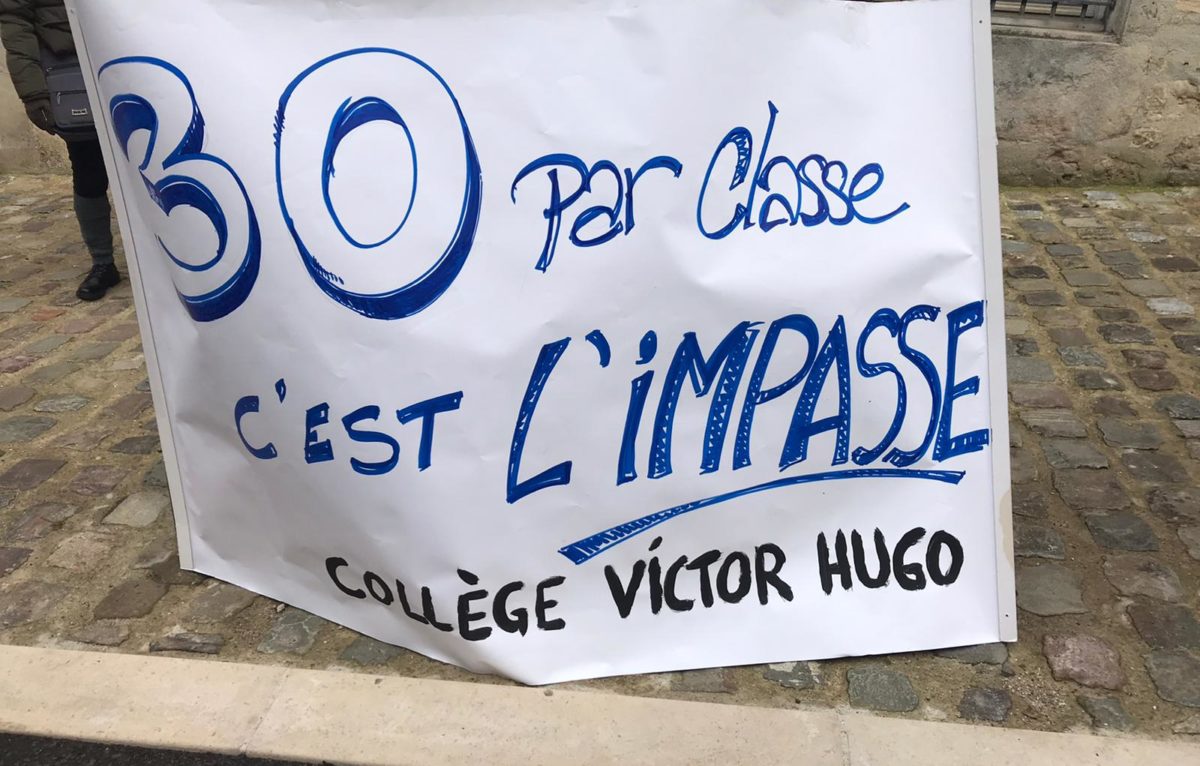 30 Par Classe
C'EST L'iMPASSE
COLLÈGE VíCTOR HUGO